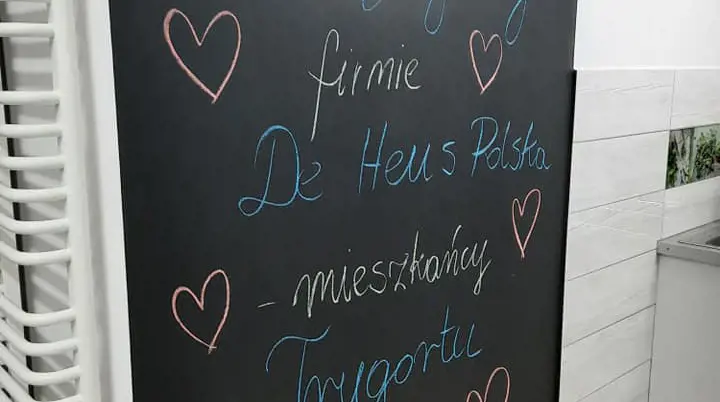 firmie
De Heus Polska
- mieszkańcy
Trygortu